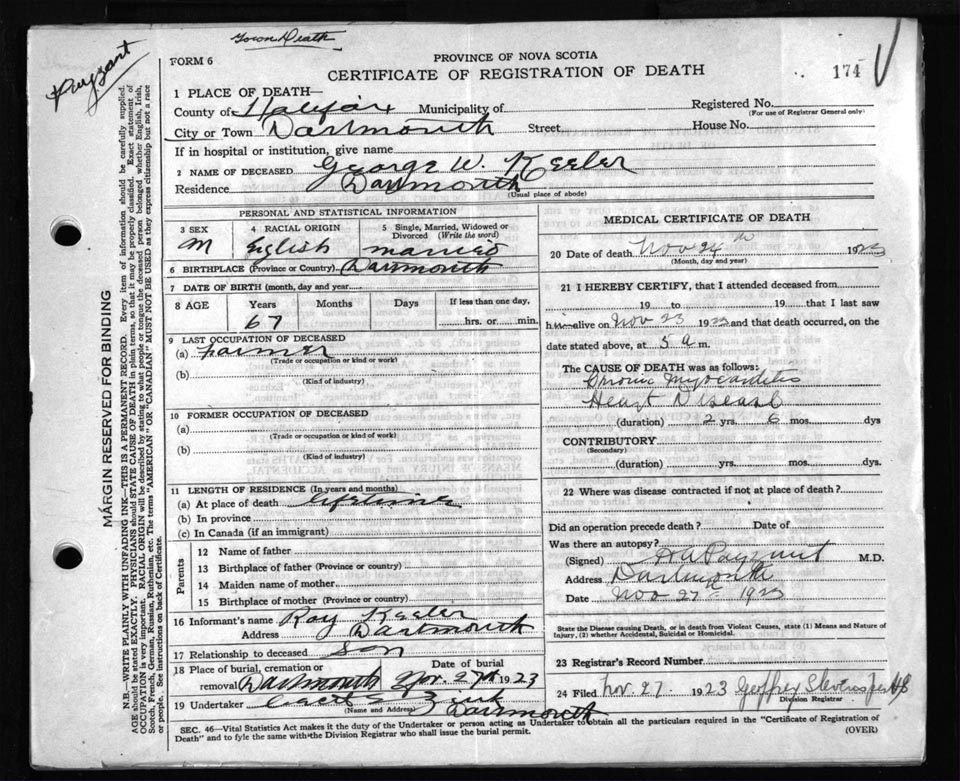 Town Death
Payzant
FORM 6
PROVINCE OF NOVA SCOTIA
CERTIFICATE OF REGISTRATION OF DEATH
174
1 PLACE OF DEATH—
County of Halifax Municipality of
Registered No.
(For use of Registrar General only)
City or Town Dartmouth Street
House No.
If in hospital or institution, give name
2 NAME OF DECEASED George W. Keeler
Residence Dartmouth
(Usual place of abode)
PERSONAL AND STATISTICAL INFORMATION
3 SEX 4 RACIAL ORIGIN 5 Single, Married, Widowed or Divorced (Write the word)
M English married
6 BIRTHPLACE (Province or Country) Dartmouth
7 DATE OF BIRTH (month, day and year)
8 AGE Years Months Days If less than one day,
67 hrs. or min.
9 LAST OCCUPATION OF DECEASED
(a) Farmer
(Trade or occupation or kind or work)
(b)
(Kind of industry)
10 FORMER OCCUPATION OF DECEASED
(a)
(Trade or occupation or kind of work)
(b)
(Kind of industry)
11 LENGTH OF RESIDENCE (In years and months)
(a) At place of death lifetime
(b) In province
(c) In Canada (if an immigrant)
Parents
12 Name of father
13 Birthplace of father (Province or country)
14 Maiden name of mother
15 Birthplace of mother (Province or country)
16 Informant's name Roy Keeler
Address Dartmouth
17 Relationship to deceased Son
18 Place of burial, cremation or Date of burial
removal Dartmouth Nov. 27th 1923
19 Undertaker Zink
(Name and Address) Dartmouth
MEDICAL CERTIFICATE OF DEATH
20 Date of death Nov 24th 1923
(Month, day and year)
21 I HEREBY CERTIFY, that I attended deceased from
19 to 19 that I last saw
him alive on Nov 23 1923 and that death occurred, on the
date stated above, at 5 a m.
The CAUSE OF DEATH was as follows:
Chronic Myocarditis
Heart Disease
(duration) 2 yrs. 6 mos. dys
CONTRIBUTORY
(Secondary)
(duration) yrs. mos. dys.
22 Where was disease contracted if not at place of death?
Did an operation precede death? Date of
Was there an autopsy?
(Signed) H A Payzant M.D.
Address Dartmouth
Date Nov 27th 1923
State the Disease causing Death, or in death from Violent Causes, state (1) Means and Nature of
Injury, (2) whether Accidental, Suicidal or Homicidal.
23 Registrar's Record Number
24 Filed Nov. 27 1923 Geoffrey
Division Registrar
SEC. 46—Vital Statistics Act makes it the duty of the Undertaker or person acting as Undertaker to obtain all the particulars required in the "Certificate of Registration of
Death" and to fyle the same with the Division Registrar who shall issue the burial permit.
(OVER)
MARGIN RESERVED FOR BINDING
N.B.—WRITE PLAINLY WITH UNFADING INK—THIS IS A PERMANENT RECORD. Every item of information should be carefully supplied.
AGE should be stated EXACTLY. PHYSICIANS should STATE CAUSE OF DEATH in plain terms, so that it may be properly classified. Exact statement of
OCCUPATION is very important. RACIAL ORIGIN will be described by stating to what people or tongue the deceased person belonged whether English, Irish,
Scotch, French, German, Russian, Ruthenian, etc. The terms "AMERICAN" OR "CANADIAN" MUST NOT BE USED as they express citizenship but not a race
or people. See instructions on back of Certificate.